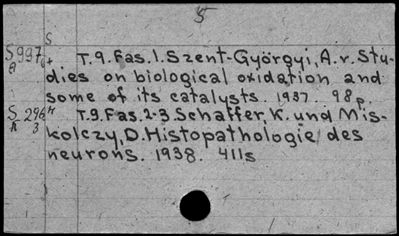 5
S
S997a+ T.9.Fas.1.Szent-Györgyi, A.v. Stu-
dies on biological oxidation and
some of its catalysts. 1937. 98p.
S 296 T.9.Fas.2-3.Schaffer, K. und Mis-
A 3 kolczy, D. Histopathologie des
neurons. 1938. 411s